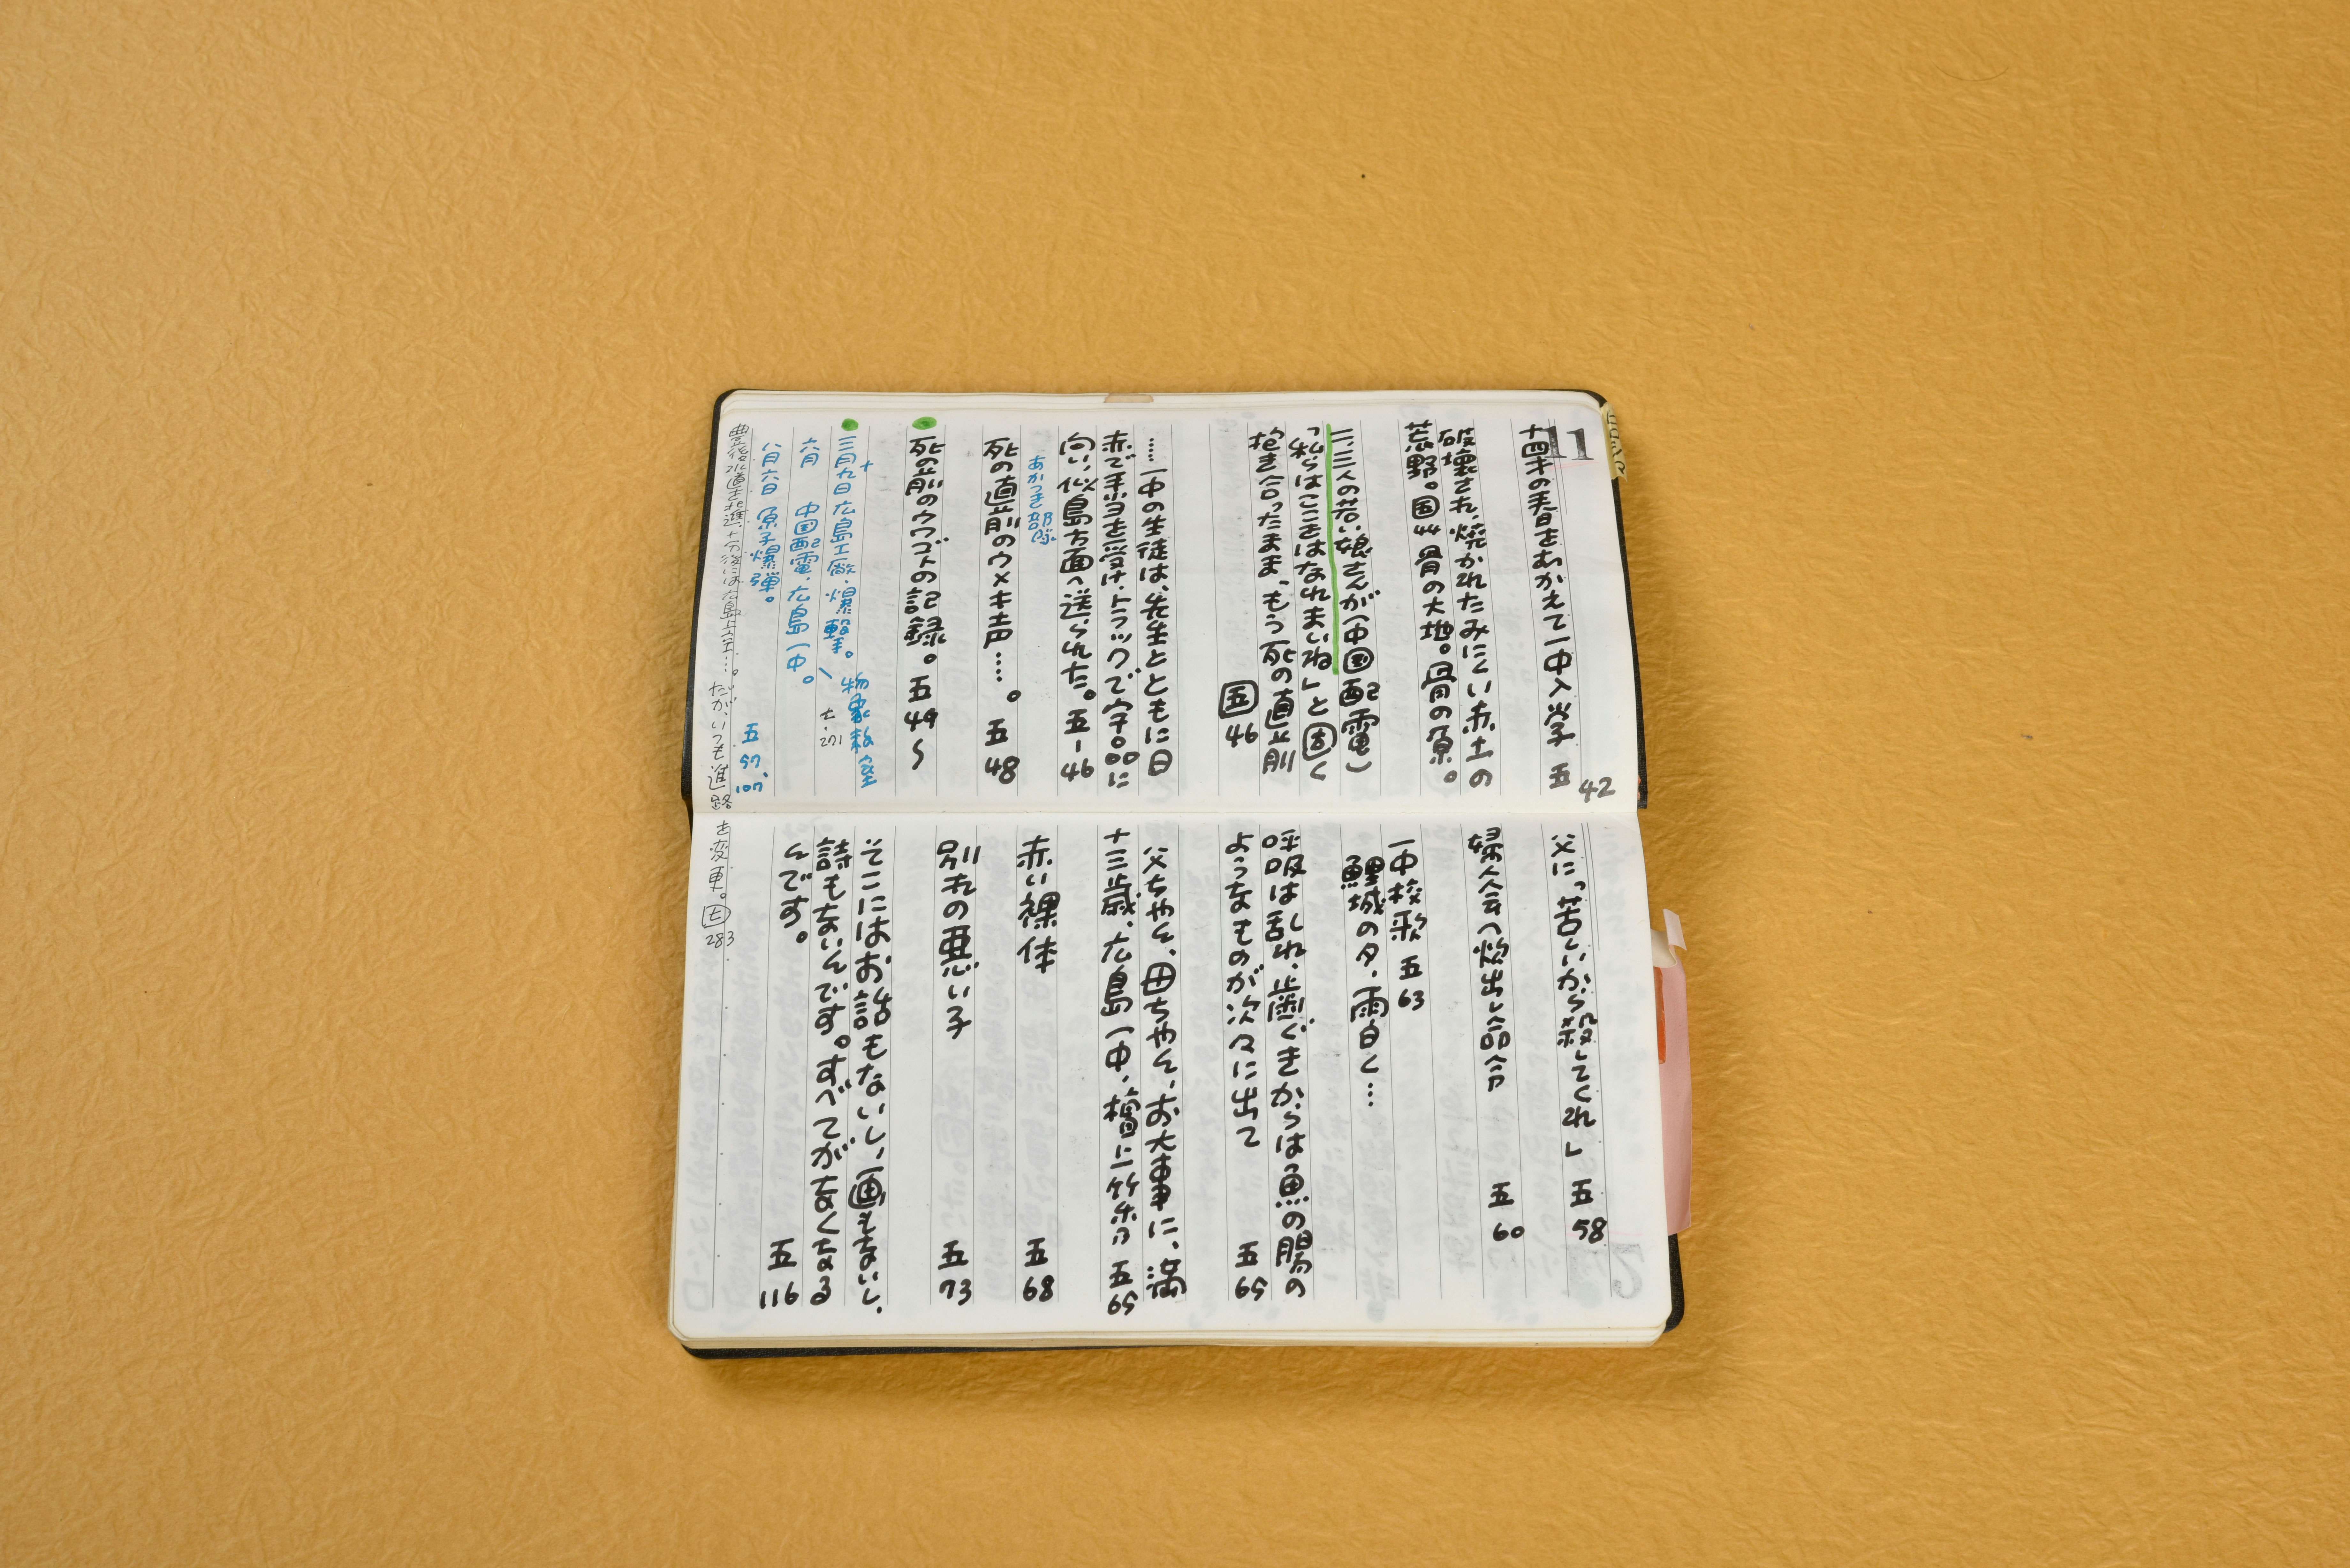 11
十四才の春をむかえて一中入学 五
42
破壊され、焼かれたみにくい赤土の
荒野。国44 骨の大地。骨の原。
二、三人の若い娘さんが(中国配電)
「私らはここをはなれまいね」と固く
抱き合ったまま、もう死の直前
五 46
……一中の生徒は、先生とともに日
赤で手当を受け、トラックで宇品に
向い、似島方面へ送られた。五-46
あかつき部隊
死の直前のウメキ声……。五 48
死の前のウワゴトの記録。五 49〜
三月十九日広島工廠・爆撃。
七.271
六月 中国配電、広島一中。
八月六日 原子爆弾。
五 57、107
豊後水道を北進、十分後には広島上空…。だが、いつも進路を変更。七 283
父に「苦しいから殺してくれ」 五 58
婦人会へ炊出し命令 五 60
一中校歌 五 63
鯉城の夕、雨白く…
呼吸は乱れ、歯ぐきからは魚の腸の
ようなものが次々に出て 五 65
父ちゃん、母ちゃん、お大事に、満
十三歳、広島一中、檀上竹秀 五 65
赤い裸体 五 68
別れの悪い子 五 73
そこにはお話もないし、画もないし、
詩もないんです。すべてがなくなる
んです。 五 116